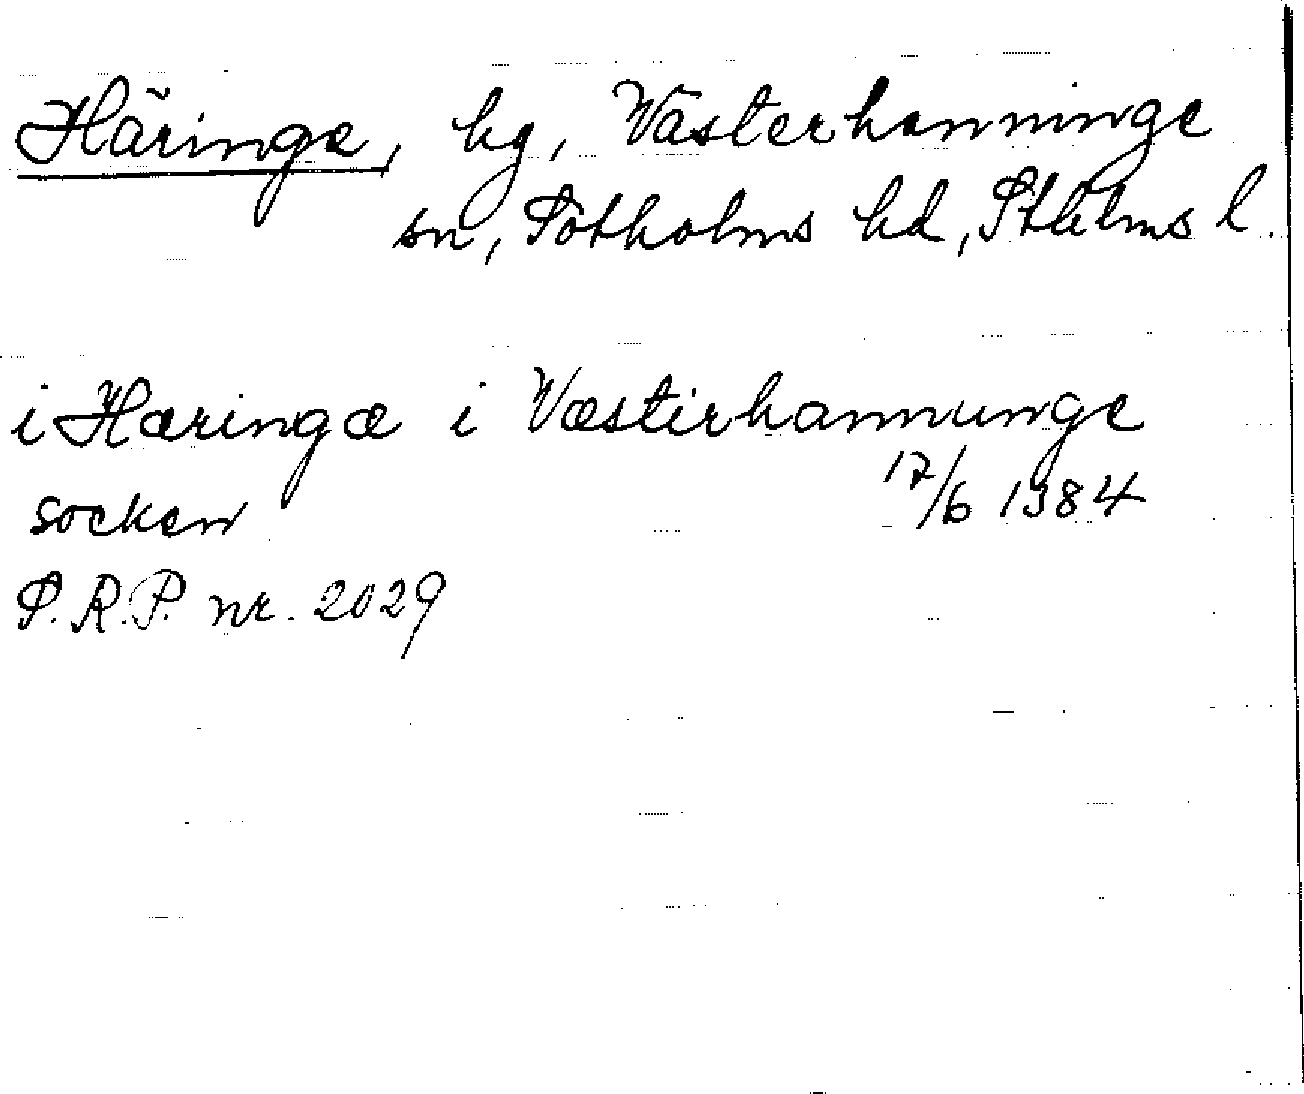 Häringe, hg, Västerhanninge
sn, Sotholms hd, Sthlms l.
i Hæringæ i Væstirhannunge
socken 17/6 1384
S.R.P. nr. 2029